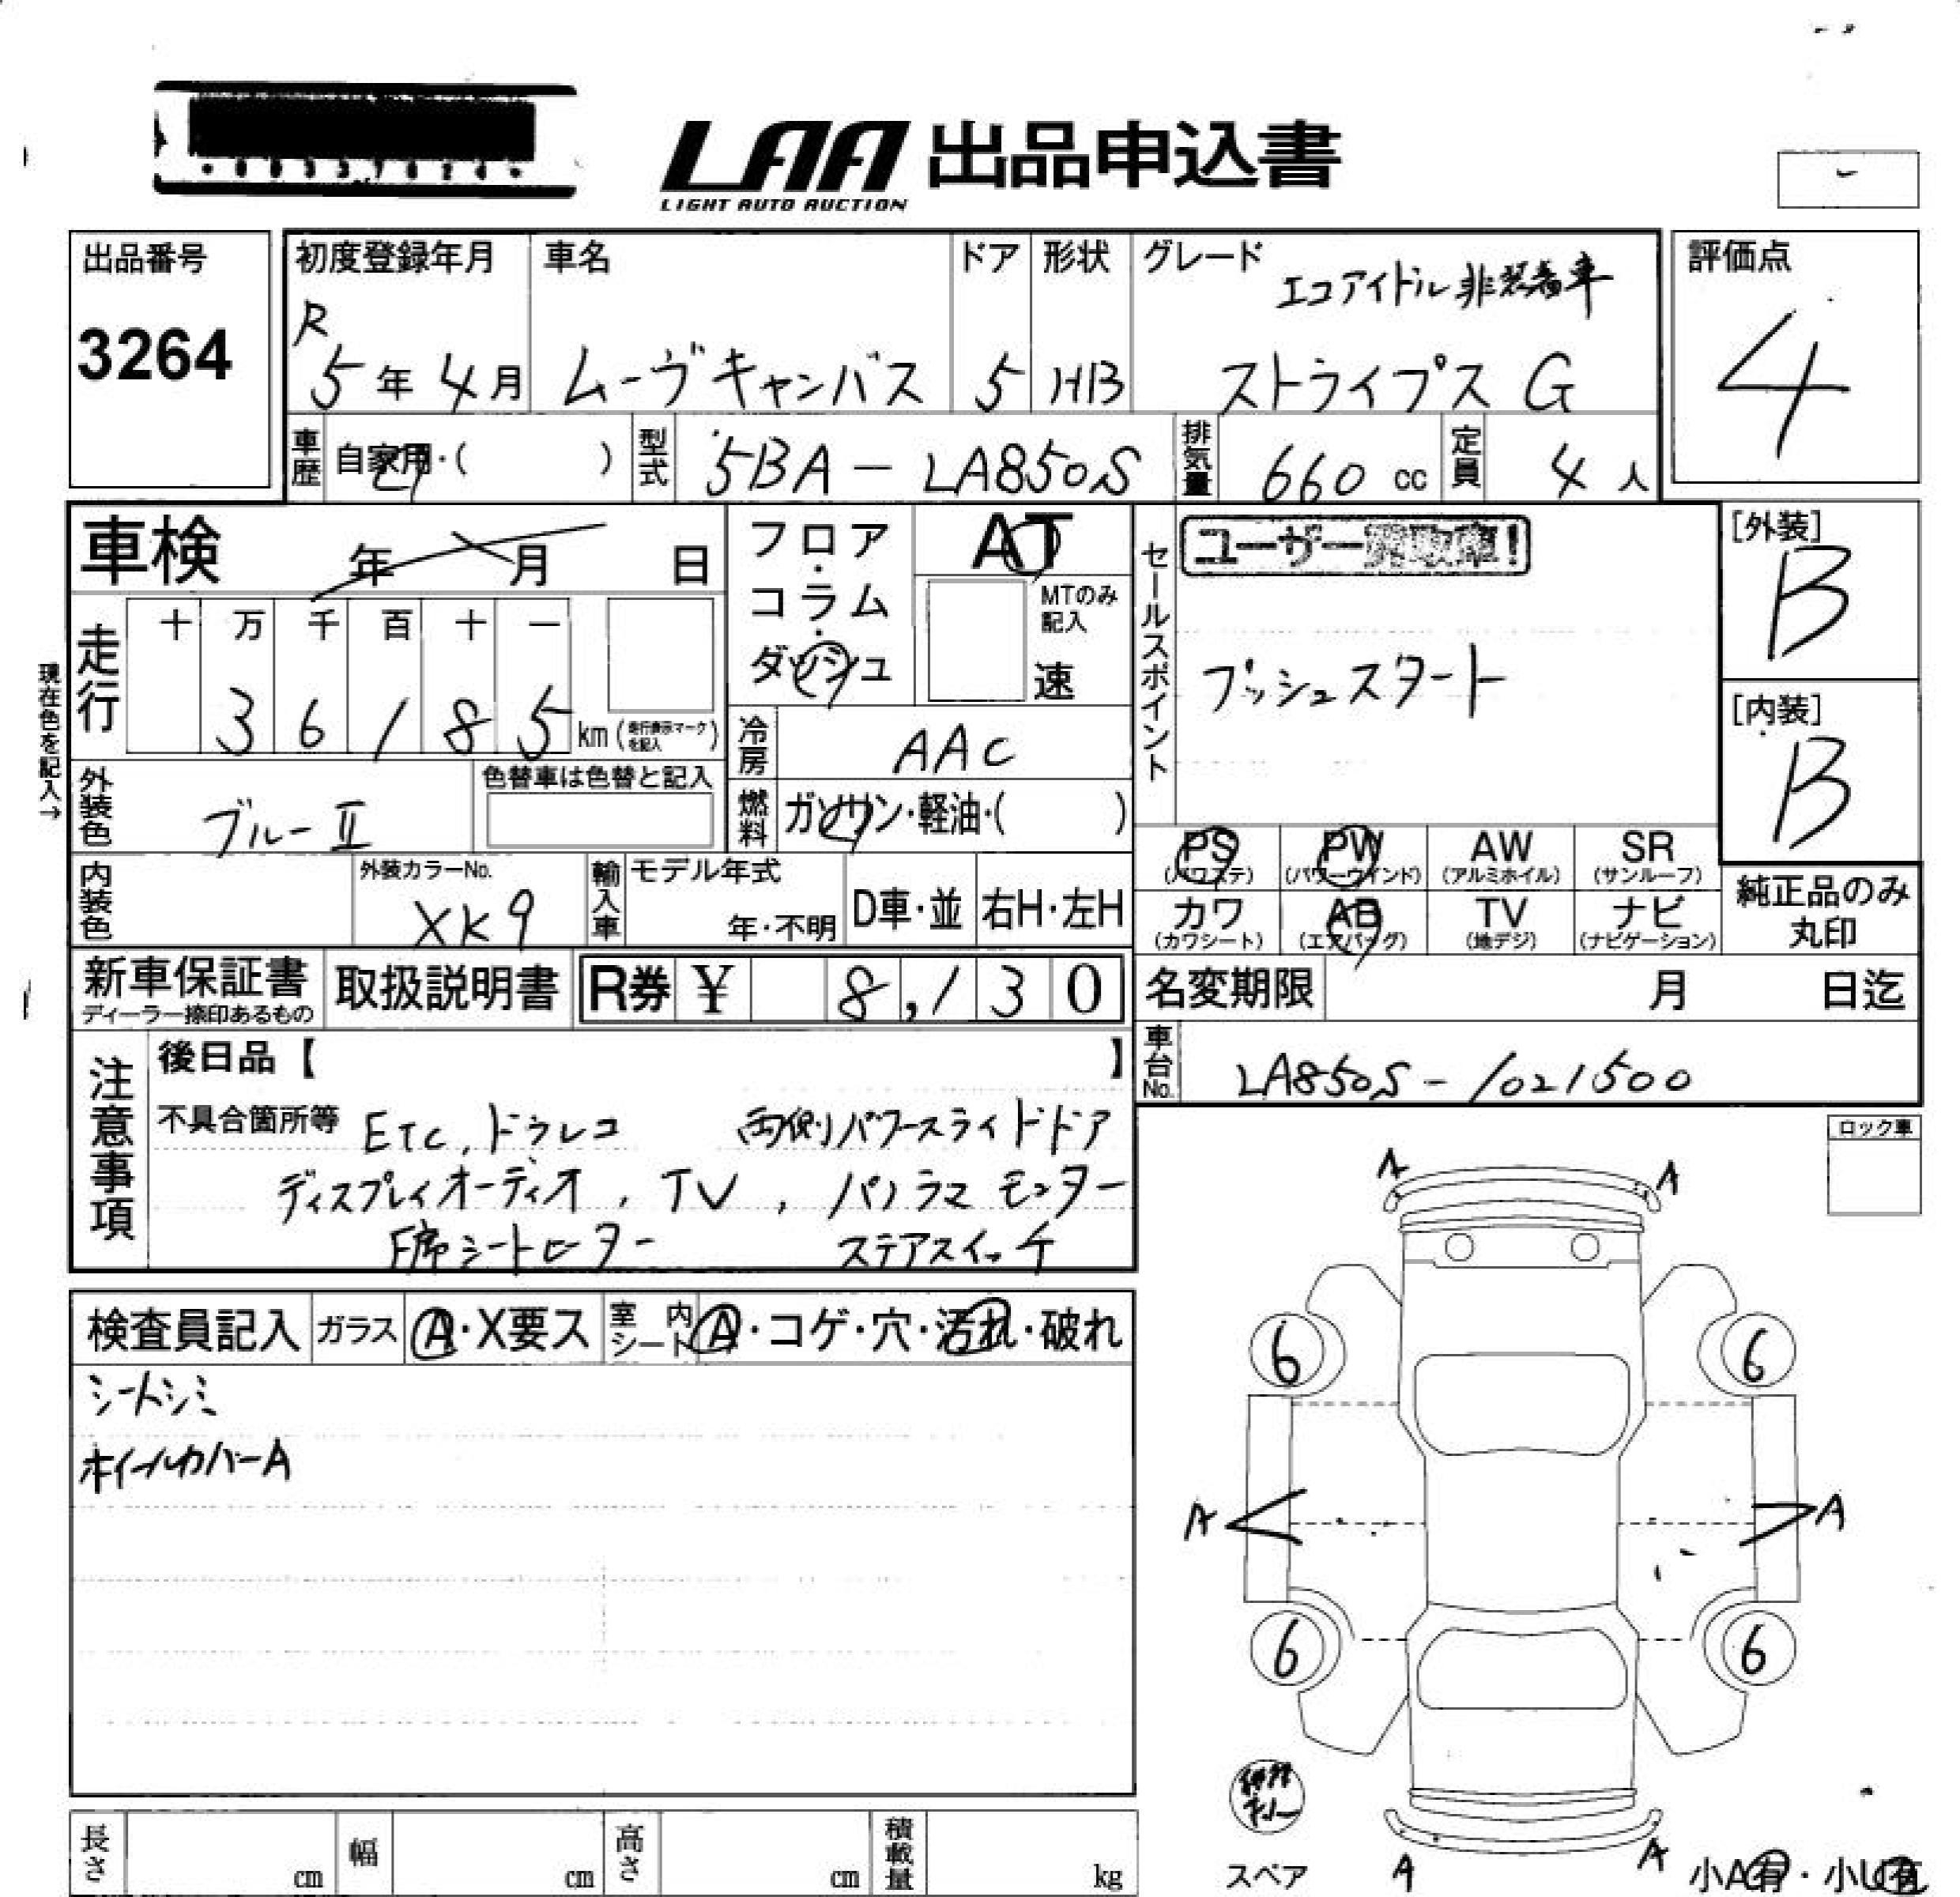 LAA 出品申込書
LIGHT AUTO AUCTION
出品番号
3264
初度登録年月
R
5年4月
車名
ムーヴキャンバス
ドア
5
形状
HB
グレード
エコアイドル非装着車
ストライプス G
評価点
4
車歴
自家用・( )
型式
5BA-LA850S
排気量
660 cc
定員
4人
車検
年 月 日
フロア・コラム・ダッシュ
AT
MTのみ記入
速
セールスポイント
ユーザー買取車!
プッシュスタート
[外装]
B
[内装]
B
現在色を記入→
走行
十 万 千 百 十 一
3 6 1 8 5 km
(走行表示マークを記入)
冷房
AAC
外装色
ブルーⅡ
色替車は色替と記入
燃料
ガソリン・軽油・( )
PS AW SR
(パワステ) (パワーウインド) (アルミホイル) (サンルーフ)
PW
カワ AB TV ナビ
(カワシート) (エアバッグ) (地デジ) (ナビゲーション)
純正品のみ
丸印
内装色
外装カラーNo.
XK9
輸入車
モデル年式
年・不明
D車・並
右H・左H
新車保証書
ディーラー捺印あるもの
取扱説明書
R券 ¥ 8,130
名変期限
月 日迄
注意事項
後日品【 】
車台No.
LA850S-1021500
不具合箇所等
ETC, ドラレコ 両側パワースライドドア
ディスプレイオーディオ, TV, パノラマモニター
F席シートヒーター ステアスイッチ
ロック車
検査員記入
ガラス
A・X要ス
室内シート
A・コゲ・穴・汚れ・破れ
シートシミ
ホイールカバーA
A A
6 6
A A
6 6
スペア
A A
小A有・小U有
長さ cm
幅 cm
高さ cm
積載量 kg